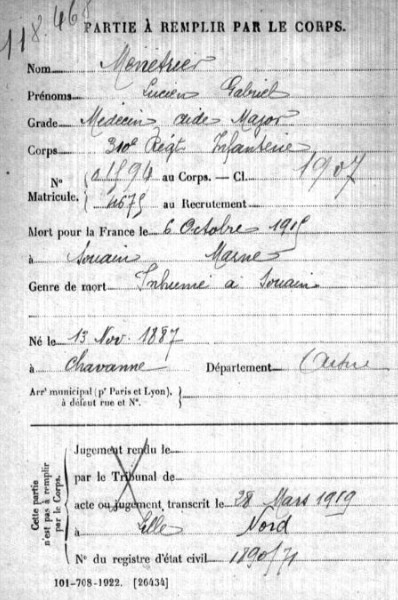 118.468
PARTIE À REMPLIR PAR LE CORPS.
Nom Monétrier
Prénoms Lucien Gabriel
Grade Médecin aide Major
Corps 310e Régt Infanterie
N° 01594 au Corps. — Cl. 1907
Matricule. 4675 au Recrutement
Mort pour la France le 6 Octobre 1915
à Souain Marne
Genre de mort Inhumé à Souain
Né le 13 Nov. 1887
à Chavanne Département
Arrt municipal (pr Paris et Lyon),
à défaut rue et N°.
Cette partie
n'est pas à remplir
par le Corps.
Jugement rendu le
par le Tribunal de
acte ou jugement transcrit le 28 Mars 1919
à Lille Nord
N° du registre d'état civil 1890/71
101-708-1922. [26434]